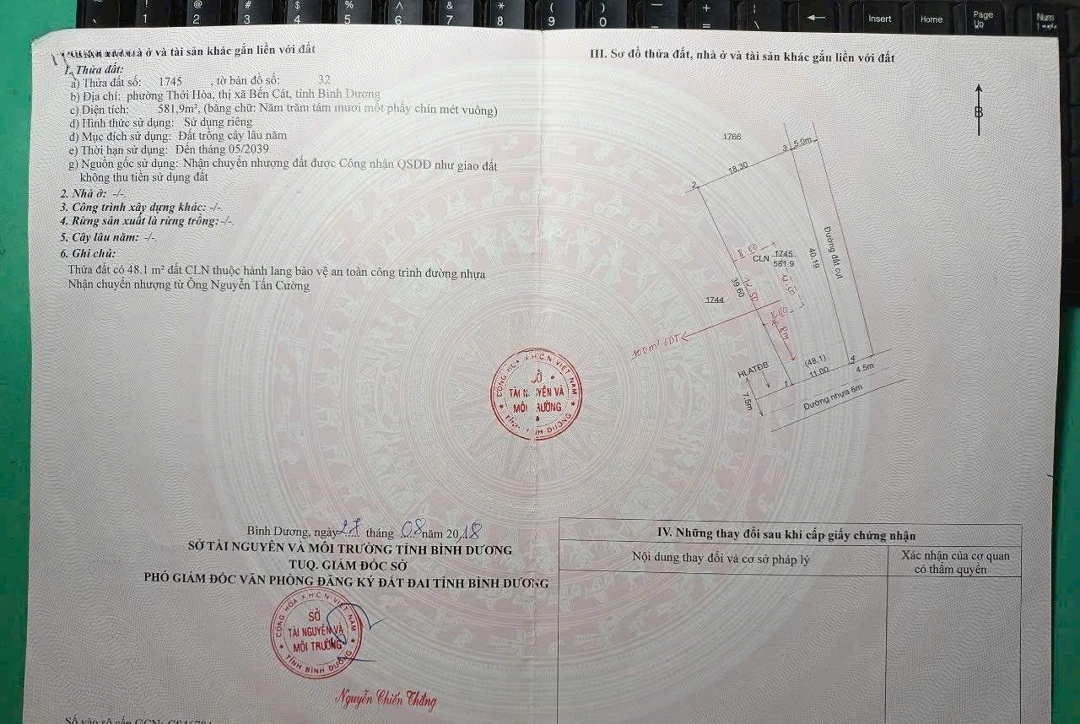 ở và tài sản khác gắn liền với đất
1. Thửa đất:
a) Thửa đất số: 1745 , tờ bản đồ số: 32
b) Địa chỉ: phường Thới Hòa, thị xã Bến Cát, tỉnh Bình Dương
c) Diện tích: 581,9m², (bằng chữ: Năm trăm tám mươi mốt phẩy chín mét vuông)
d) Hình thức sử dụng: Sử dụng riêng
đ) Mục đích sử dụng: Đất trồng cây lâu năm
e) Thời hạn sử dụng: Đến tháng 05/2039
g) Nguồn gốc sử dụng: Nhận chuyển nhượng đất được Công nhận QSDĐ như giao đất
không thu tiền sử dụng đất
2. Nhà ở: -/-.
3. Công trình xây dựng khác: -/-.
4. Rừng sản xuất là rừng trồng:-/-.
5. Cây lâu năm: -/-.
6. Ghi chú:
Thửa đất có 48.1 m² đất CLN thuộc hành lang bảo vệ an toàn công trình đường nhựa
Nhận chuyển nhượng từ Ông Nguyễn Tấn Cường
Bình Dương, ngày 27 tháng 08 năm 2018
SỞ TÀI NGUYÊN VÀ MÔI TRƯỜNG TỈNH BÌNH DƯƠNG
TUQ. GIÁM ĐỐC SỞ
PHÓ GIÁM ĐỐC VĂN PHÒNG ĐĂNG KÝ ĐẤT ĐAI TỈNH BÌNH DƯƠNG
CỘNG HÒA X.H.C.N VIỆT NAM
SỞ
TÀI NGUYÊN VÀ
MÔI TRƯỜNG
TỈNH BÌNH DƯƠNG
Nguyễn Chiến Thắng
Số vào sổ cấp GCN:
CỘNG HÒA X.H.C.N VIỆT NAM
SỞ
TÀI NGUYÊN VÀ
MÔI TRƯỜNG
TỈNH BÌNH DƯƠNG
III. Sơ đồ thửa đất, nhà ở và tài sản khác gắn liền với đất
B
1766
3
5.0m
18.30
2
Đường đất cụt
40.19
8.00
CLN 1745
581.9
39.60
12.50
12.50
1744
8.00
8M
100m² LDT
HLATĐB
(48.1)
4
11.00
4.5m
1
7.5m
Đường nhựa 6m
IV. Những thay đổi sau khi cấp giấy chứng nhận
Nội dung thay đổi và cơ sở pháp lý
Xác nhận của cơ quan
có thẩm quyền
! 1
@ 2
# 3
$ 4
% 5
^ 6
& 7
* 8
( 9
) 0
Insert
Home
Page
Up
Num